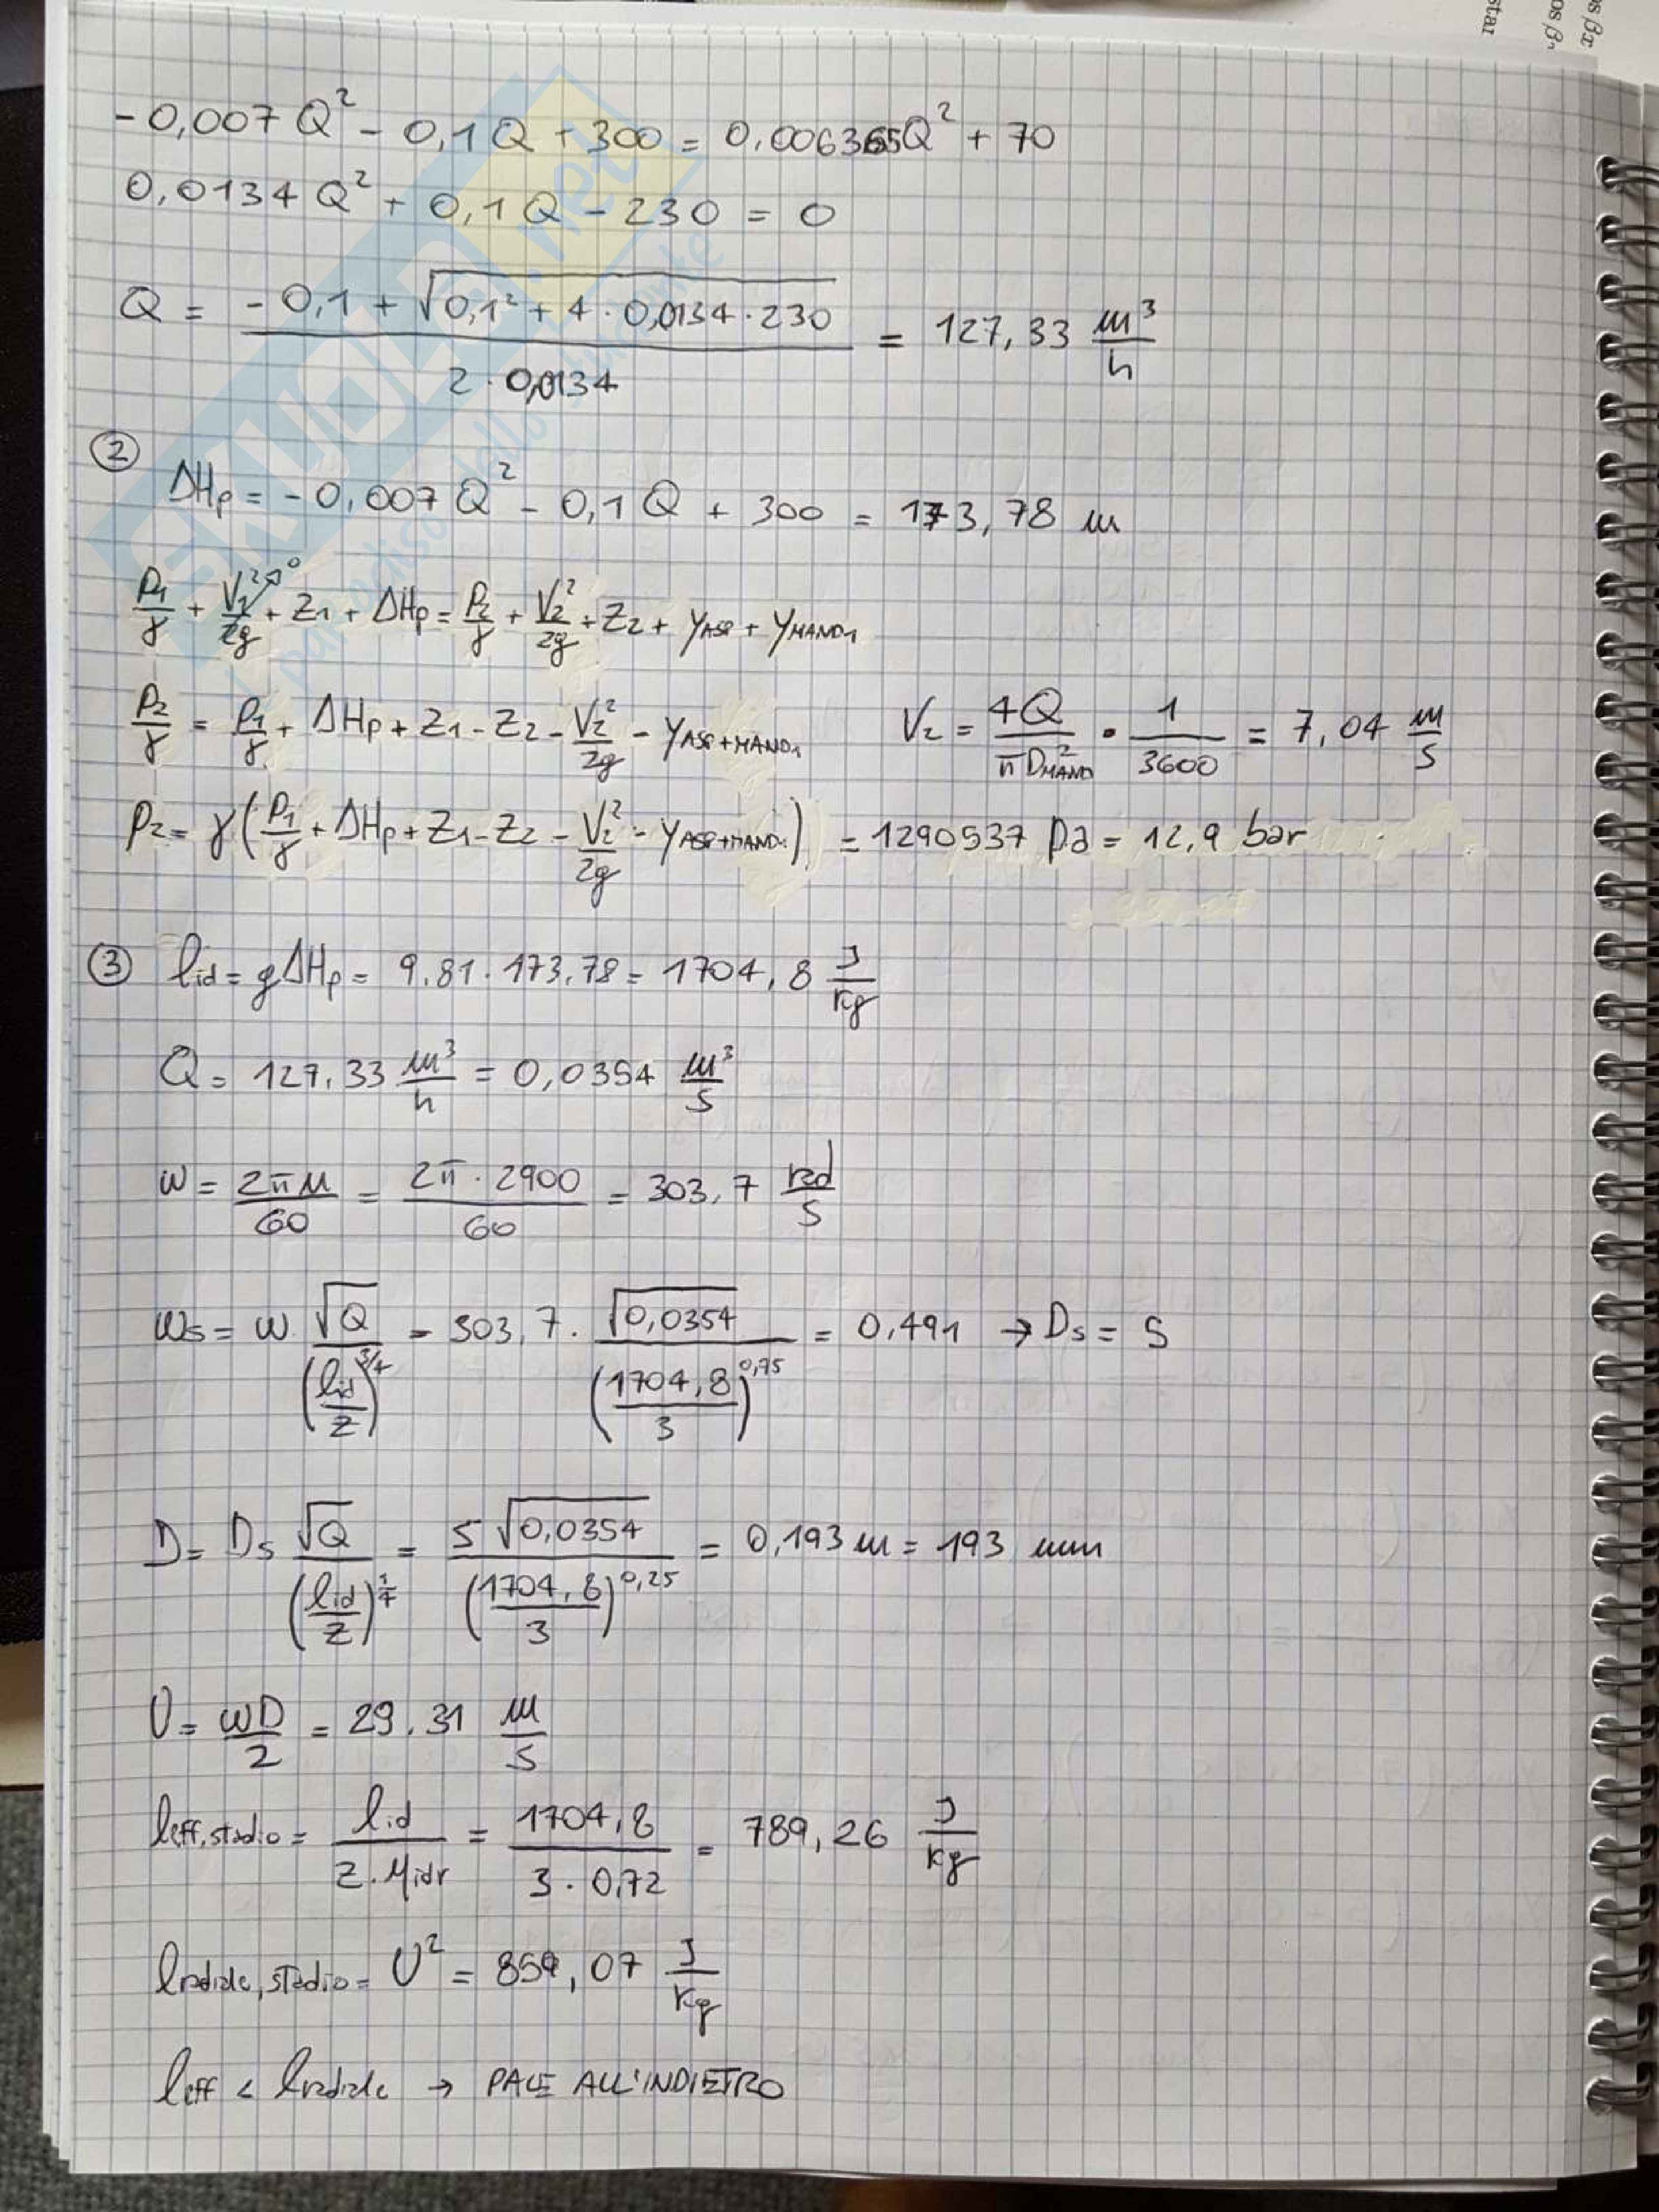 os βx
os β
star
-0,007 Q² - 0,1 Q + 300 = 0,006365Q² + 70
0,0134 Q² + 0,1 Q - 230 = 0
Q = (-0,1 + √(0,1² + 4 · 0,0134 · 230)) / (2 · 0,0134) = 127,33 m³/h
②
ΔHp = -0,007 Q² - 0,1 Q + 300 = 173,78 m
P1/γ + V1²/2g ↗0 + Z1 + ΔHp = P2/γ + V2²/2g + Z2 + yASP + yMAND1
P2/γ = P1/γ + ΔHp + Z1 - Z2 - V2²/2g - yASP+MAND1 V2 = 4Q/(πD²MAND) · 1/3600 = 7,04 m/s
P2 = γ(P1/γ + ΔHp + Z1 - Z2 - V2²/2g - yASP+MAND1) = 1290537 Pa = 12,9 bar
③ lid = gΔHp = 9.81 · 173,78 = 1704,8 J/kg
Q = 127,33 m³/h = 0,0354 m³/s
ω = 2πn/60 = 2π · 2900/60 = 303,7 rad/s
ωs = ω √Q/(lid/z)^3/4 = 303,7 · √0,0354/(1704,8/3)^0,75 = 0,491 → Ds = 5
D = Ds √Q/(lid/z)^1/4 = 5 √0,0354/(1704,8/3)^0,25 = 0,193 m = 193 mm
U = ωD/2 = 29,31 m/s
leff,stadio = lid/(z · ηidr) = 1704,8/(3 · 0,72) = 789,26 J/kg
lradiale,stadio = U² = 859,07 J/kg
leff < lradiale → PALE ALL'INDIETRO
SKUOLA.net
il paradiso dello studente